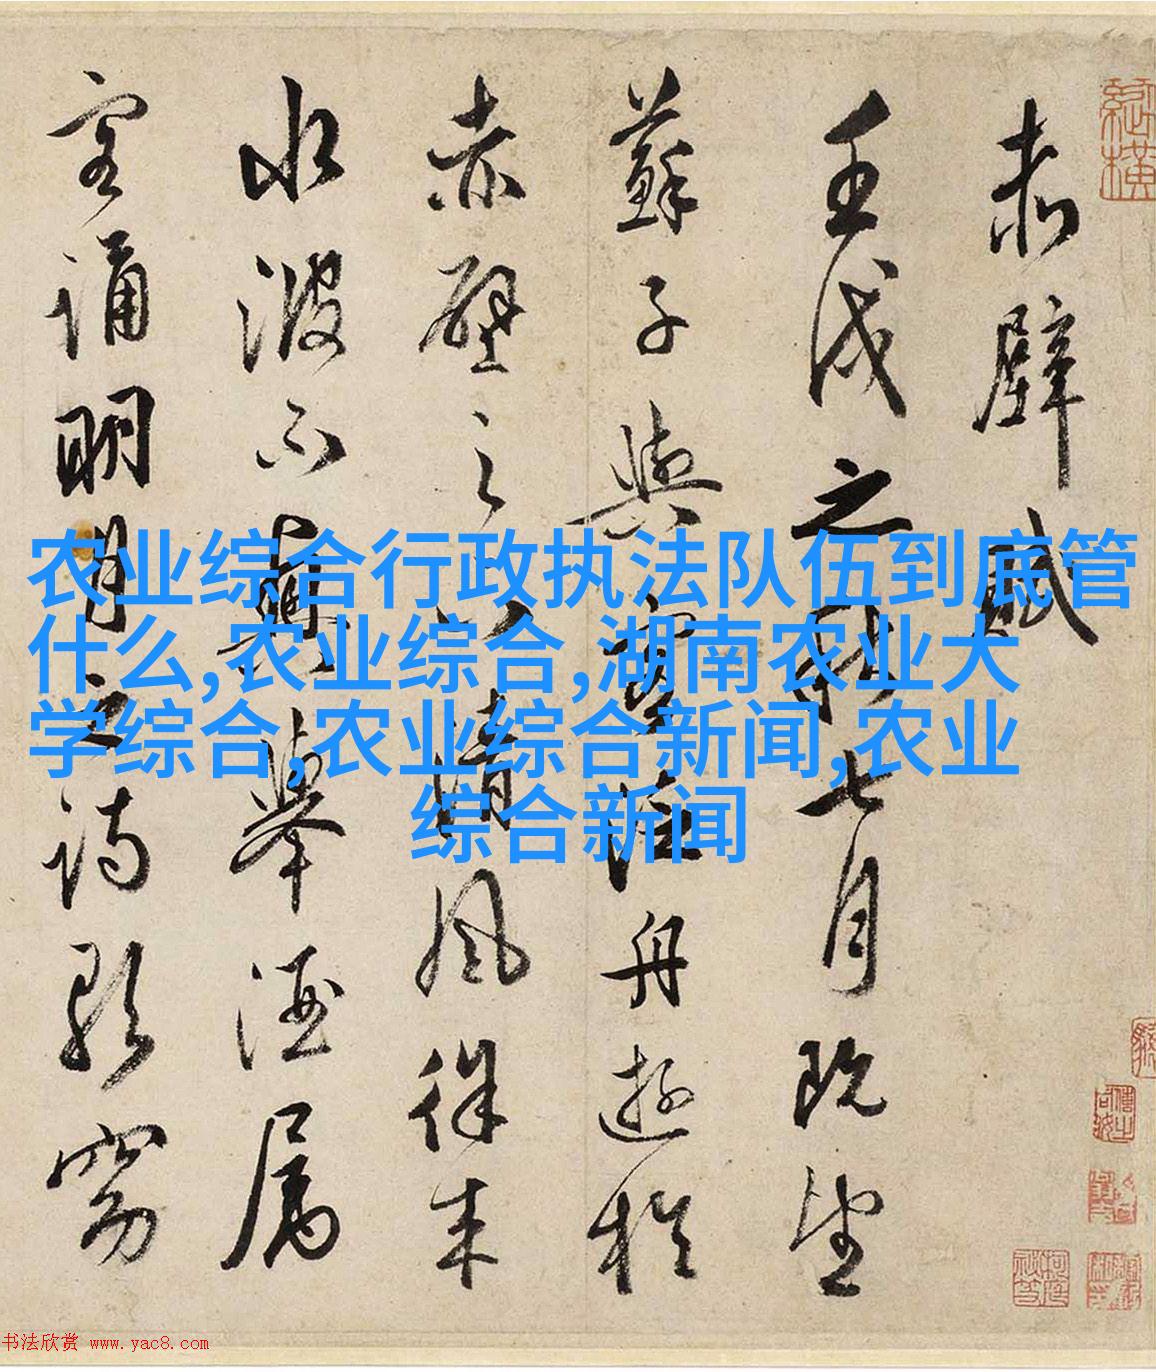 赤壁賦
壬戌之秋七月既望
蘇子與客泛舟遊於
赤壁之下清風徐来
水波不興舉酒属
客誦明月之詩歌窈
农业综合行政执法队伍到底管
什么,农业综合,湖南农业大
学综合,农业综合新闻,农业
综合新闻
书法欣赏 www.yac8.com